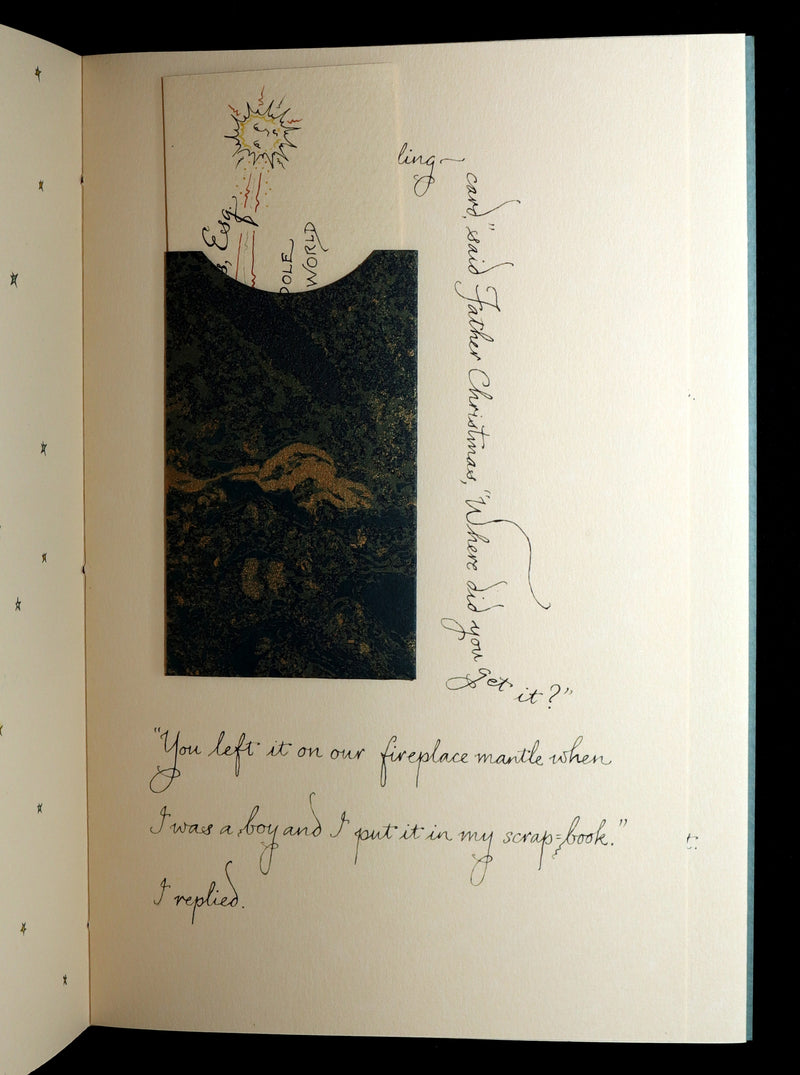 s, Esq.
POLE
WORLD
ling
card," said Father Christmas, "Where did you get it?"
"You left it on our fireplace mantle when
I was a boy and I put it in my scrap=book."
I replied.